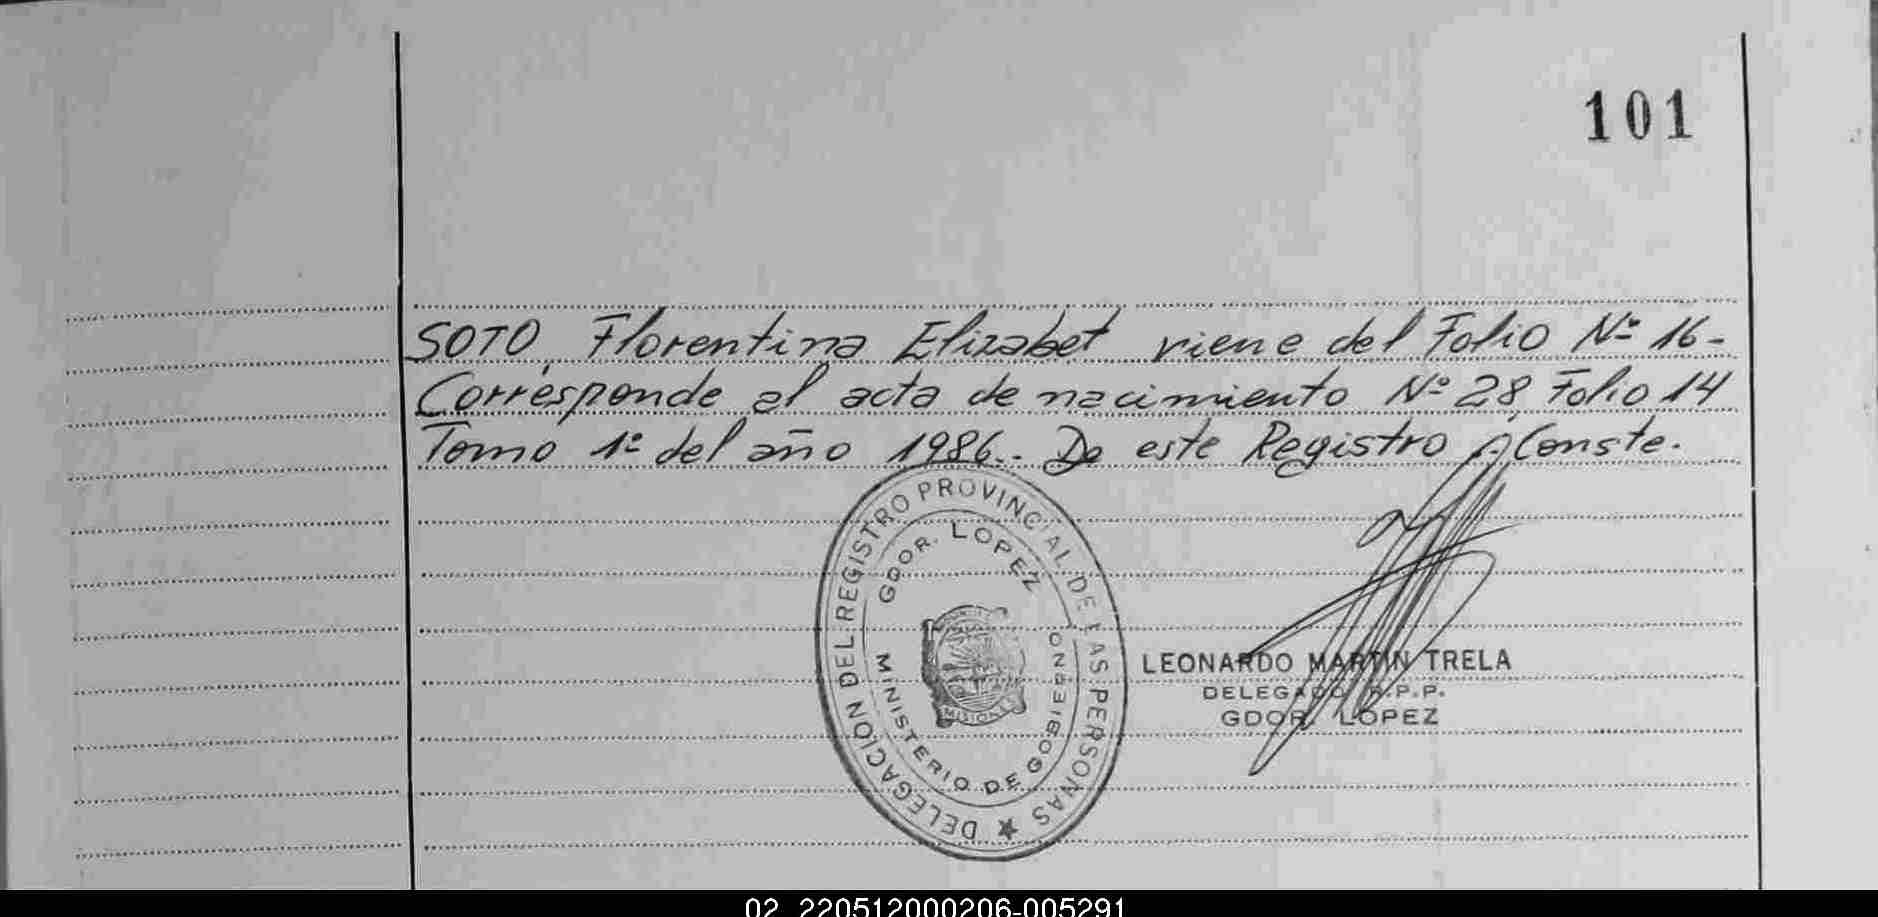 101
SOTO, Florentina Elizabet viene del Folio Nº 16-
Corresponde al acta de nacimiento Nº 28 Folio 14
Tomo 1º del año 1986.- De este Registro . Conste.
DELEGACION DEL REGISTRO PROVINCIAL DE LAS PERSONAS
GDOR. LOPEZ
MINISTERIO DE GOBIERNO
MISIONES
LEONARDO MARTIN TRELA
DELEGADO R.P.P.
GDOR. LOPEZ
02 220512000206-005291